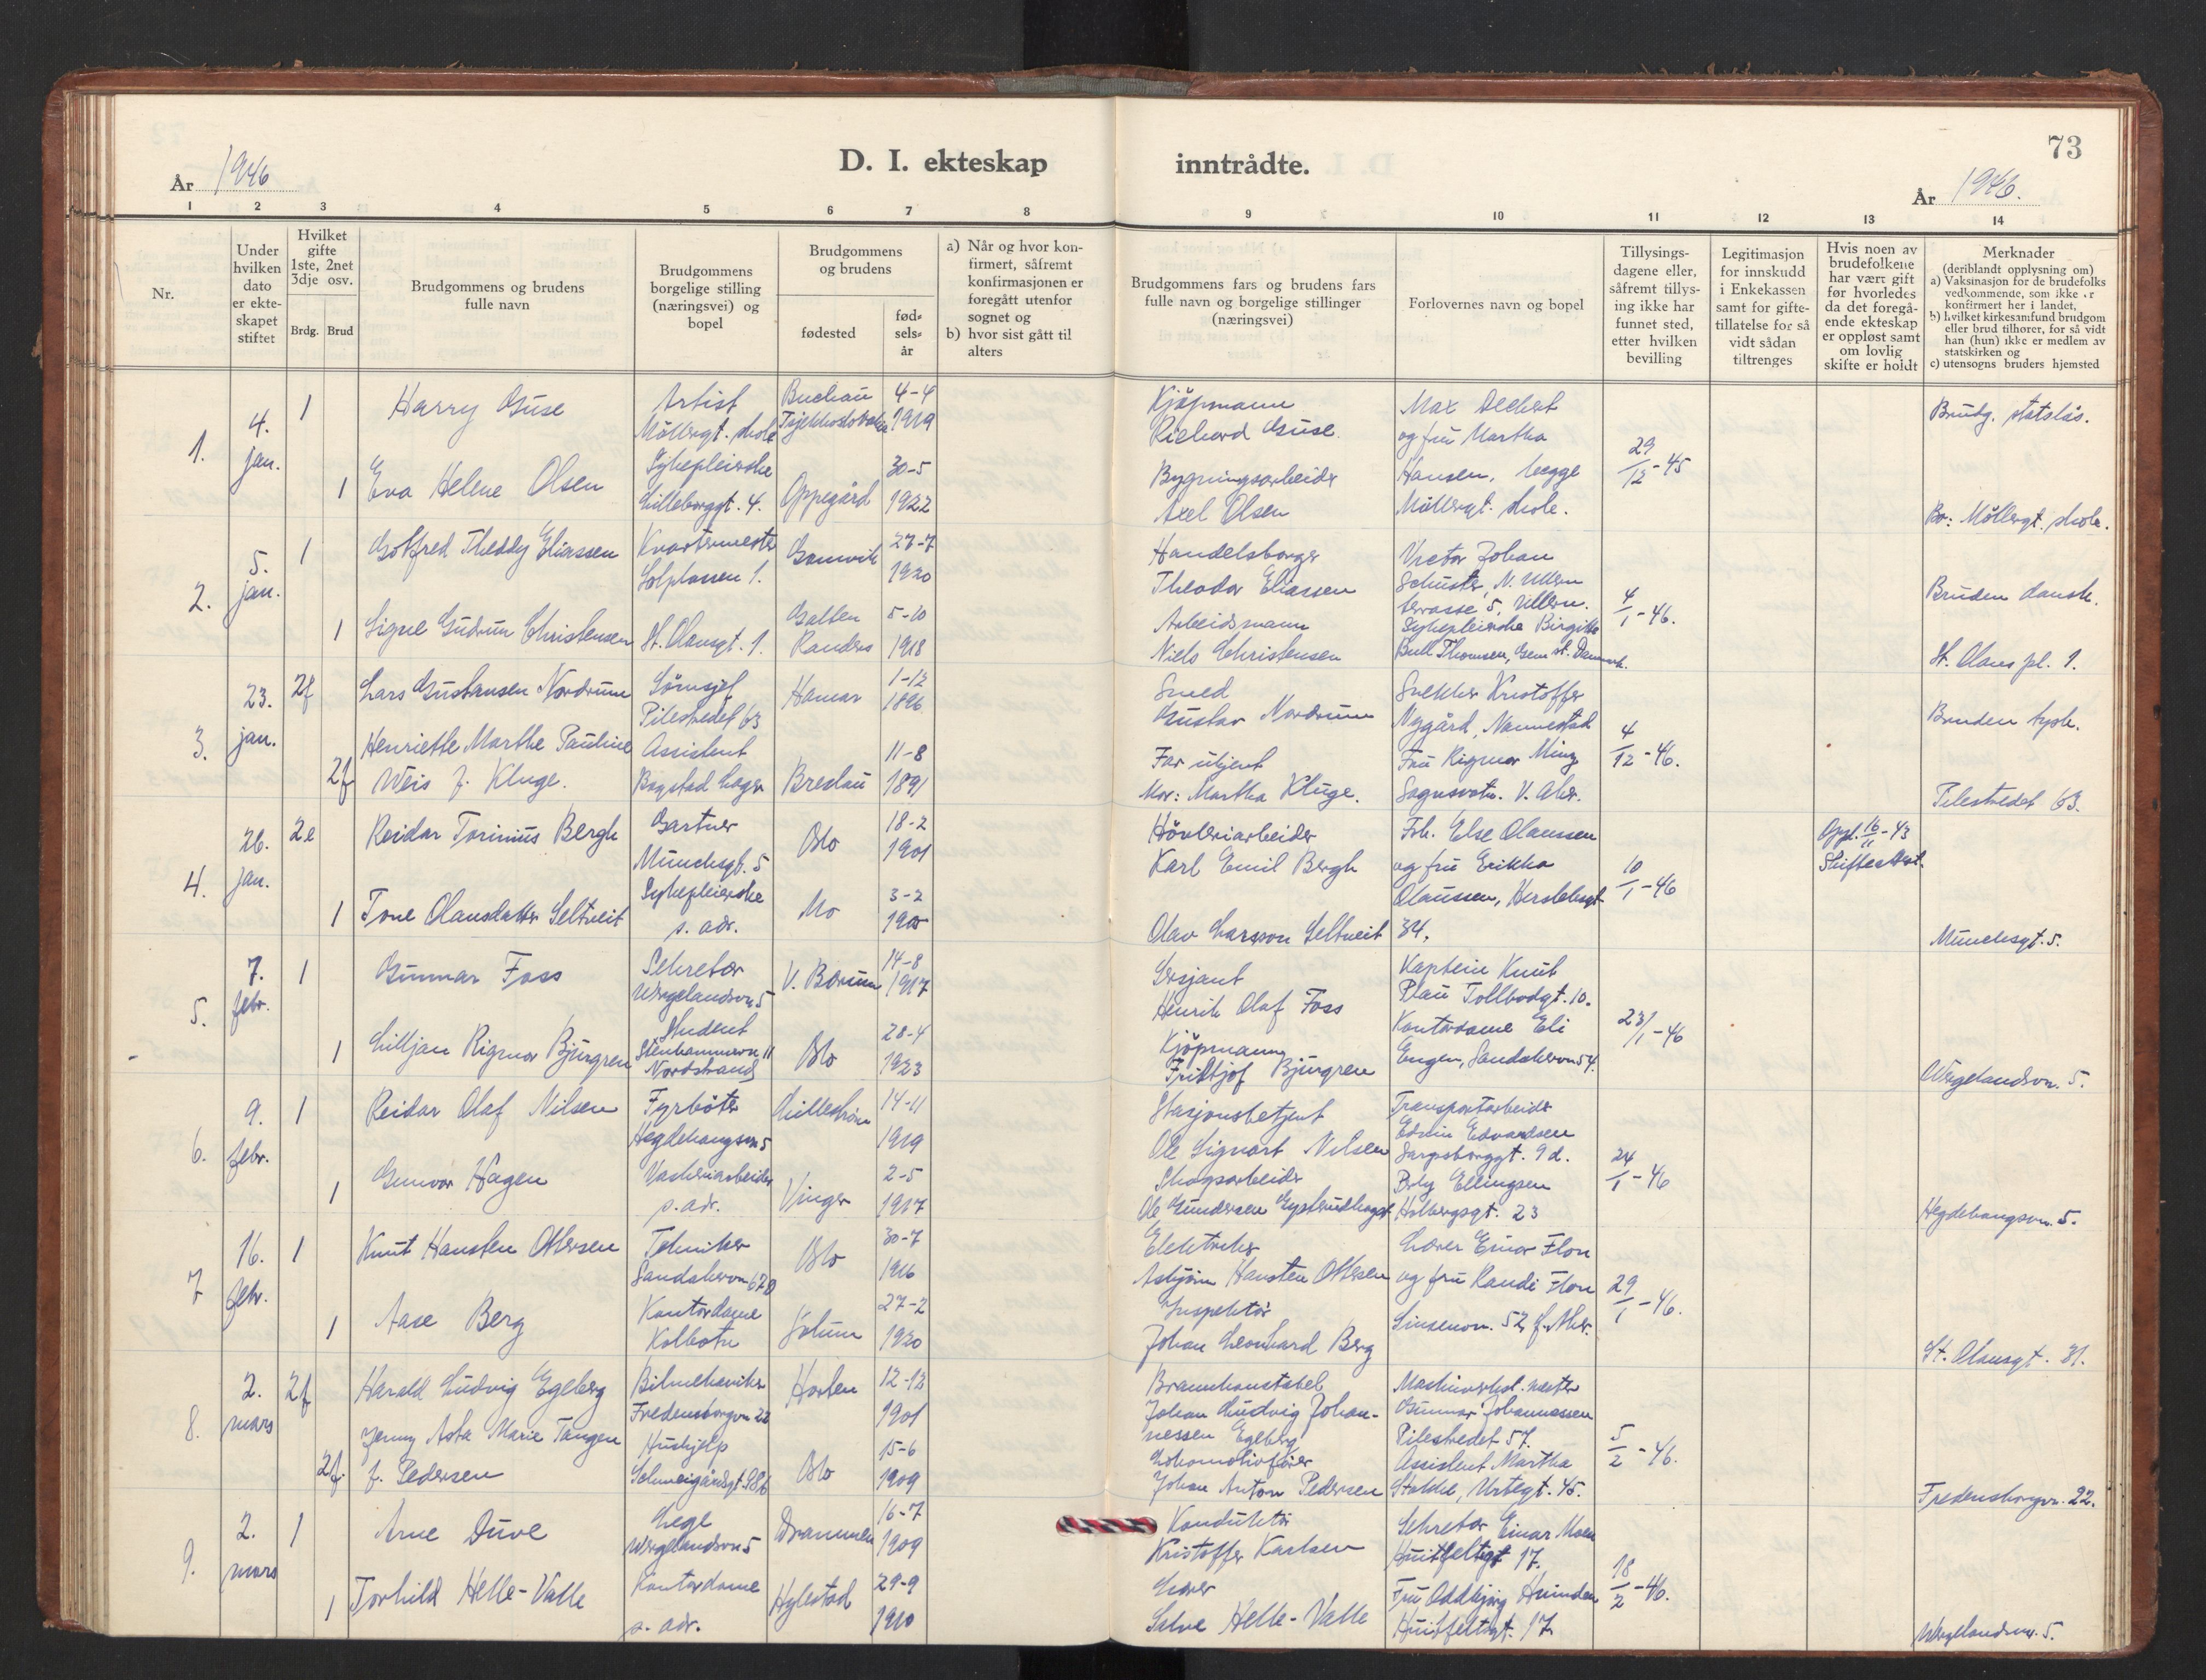 D. I. ekteskap
inntrådte.
73
År 1946
År 1946.
1 2 3 4 5 6 7 8
9 10 11 12 13 14
Nr.
Under hvilken dato er ekteskapet stiftet
Hvilket gifte 1ste, 2net 3dje osv.
Brdg. Brud
Brudgommens og brudens fulle navn
Brudgommens borgelige stilling (næringsvei) og bopel
Brudgommens og brudens
fødested
fød-
sels-
år
a) Når og hvor kon-
firmert, såfremt
konfirmasjonen er
foregått utenfor
sognet og
b) hvor sist gått til
alters
Brudgommens fars og brudens fars
fulle navn og borgelige stillinger
(næringsvei)
Forlovernes navn og bopel
Tillysings-
dagene eller,
såfremt tillys-
ing ikke har
funnet sted,
etter hvilken
bevilling
Legitimasjon
for innskudd
i Enkekassen
samt for gifte-
tillatelse for så
vidt sådan
tiltrenges
Hvis noen av
brudefolkene
har vært gift
før hvorledes
da det foregå-
ende ekteskap
er oppløst samt
om lovlig
skifte er holdt
Merknader
(deriblandt opplysning om)
a) Vaksinasjon for de brudefolks
vedkommende, som ikke er
konfirmert her i landet,
b) hvilket kirkesamfund brudgom
eller brud tilhører, for så vidt
han (hun) ikke er medlem av
statskirken og
c) utensogns bruders hjemsted
1.
4. jan.
1
Harry Guse
Artist
Möllergt. skole
Buchau
Tsjekkoslovakia
4-4
1919
Kjöpmann
Richard Guse.
Max Dechert
og fru Martha
Hansen, begge
Möllergt. skole.
29/12-45
Brudg. statslös.
1
Eva Helene Olsen
Sykepleierske
Lilleborggt. 4.
Oppegård
30-5
1922
Bygningsarbeider
Axel Olsen
Bo: Möllergt. skole.
2.
5. jan.
1
Gotfred Theddy Eliassen
Kvartermester
Solplassen 1.
Gamvik
27-7
1920
Handelsborger
Theodor Eliassen
Victor Johan
Schuster, N. Ullern
terrasse 5, Ullern.
Sykepleierske Birgitte
Bull Thomsen, Gem st. Danmark.
4/1-46.
Bruden dansk.
1
Signe Gudrun Christensen
St. Olavsgt. 1.
Galten
Randers
5-10
1918
Arbeidsmann
Niels Christensen
St. Olavs pl. 1.
3.
23. jan.
2f
Lars Gustavsen Nordrum
Lönnsjef
Pilestredet 63
Hamar
1-12
1896
Smed
Gustav Nordrum
Snekker Kristoffer
Nygård, Nannestad
Fru Rigmor Ming
Sognsvatn. V. Aker.
4/12-46.
Bruden tysk.
2f
Henriette Marthe Pauline
Weis f. Kluge.
Assistent
Bogstad Lager
Breslau
11-8
1891
Far ukjent
Mor: Martha Kluge.
Pilestredet 63.
4.
26. jan.
2e
Reidar Torinius Bergh
Gartner
Munchsgt. 5
Oslo
18-2
1901
Hövleriarbeider
Karl Emil Bergh
Frk. Else Olaussen
og fru Erikka
Olaussen, Herslebsgt
34.
10/1-46
Oppl. 16/11-43
Skifteattest.
1
Tone Olavsdatter Seltveit
Sykepleierske
s. adr.
Mo
3-2
1905
Olav Larsson Seltveit
Munchsgt. 5.
5.
7. febr.
1
Gunnar Foss
Sekretær
Wergelandsvn 5
V. Bærum
14-8
1917
Sersjant
Henrik Olaf Foss
Kaptein Knut
Plau Tollbodgt. 10.
Kontordame Eli
Engen, Sandakervn 54.
23/1-46
1
Lilljan Rigmor Bjurgren
Student
Stenhammervn 11
Nordstrand
Oslo
28-4
1923
Kjöpmann
Fridtjof Bjurgren
Wergelandsvn. 5.
6.
9. febr.
1
Reidar Olaf Nilsen
Fyrböter
Hegdehaugsvn 5
Lilleström
14-11
1919
Stasjonsbetjent
Ole Signart Nilsen
Transportarbeider
Edvin Edvardsen
Sarpsborggt. 9 d.
Boly Ellingsen
Holbergsgt. 23
24/1-46
1
Gunvor Hagen
Vaskeriarbeider
s. adr.
Vinger
2-5
1917
Skogsarbeider
Ole Gundersen
Hegdehaugsvn. 5.
7
16. febr.
1
Knut Hansten Ottersen
Tekniker
Sandakervn 67 D
Oslo
30-7
1916
Elektriker
Asbjörn Hansten Ottersen
Lærer Einar Flon
og fru Randi Flon
Sinsenvn. 52 f. Aker.
29/1-46.
1
Aase Berg
Kontordame
Kolbotn
27-2
1920
Inspektör
Johan Leonhard Berg
St. Olavsgt. 31.
8.
2. mars
2f
Harald Ludvig Egeberg
Bilmekaniker
Fredensborgvn 22
Horten
12-12
1901
Brannkonstabel
Johan Ludvig Johan-
nessen Egeberg
Gunnar Johannessen
Pilestredet 57.
Assistent Martha
Stokke, Urtegt. 45.
5/2-46.
2f.
Jenny Asta Marie Tangen
f. Pedersen
Hushjelp
Schweigårdsgt. 98 b
Oslo
15-6
1909
Lokomotivförer
Johan Anton Pedersen
Fredensborgvn. 22.
9.
2. mars
1
Arne Duve
Lege
Wergelandsvn 5
Drammen
16-7
1909
Konduktör
Kristoffer Karlsen
Sekretær Einar Moen
Huitfeltsgt 17.
Fru Oddbjörg Hvinden
Huitfeltsgt. 17
18/2-46.
1
Torhild Helle-Valle
Kontordame
s. adr.
Hylestad
29-9
1910
Lærer
Salve Helle-Valle
Wergelandsvn. 5.